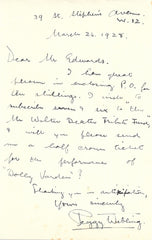 39 St. Stephen's Avenue.
W.12.
March 26. 1928.
Dear Mr Edwards.
I have great
pleasure in enclosing P.O. for
six shillings. I wish to
subscribe to the
Mr Walter Fund,
& will you please send
me a half crown ticket
for the performance of
"Dolly Varden"?
Thanking you in anticipation,
Yours sincerely
Peggy Webling.